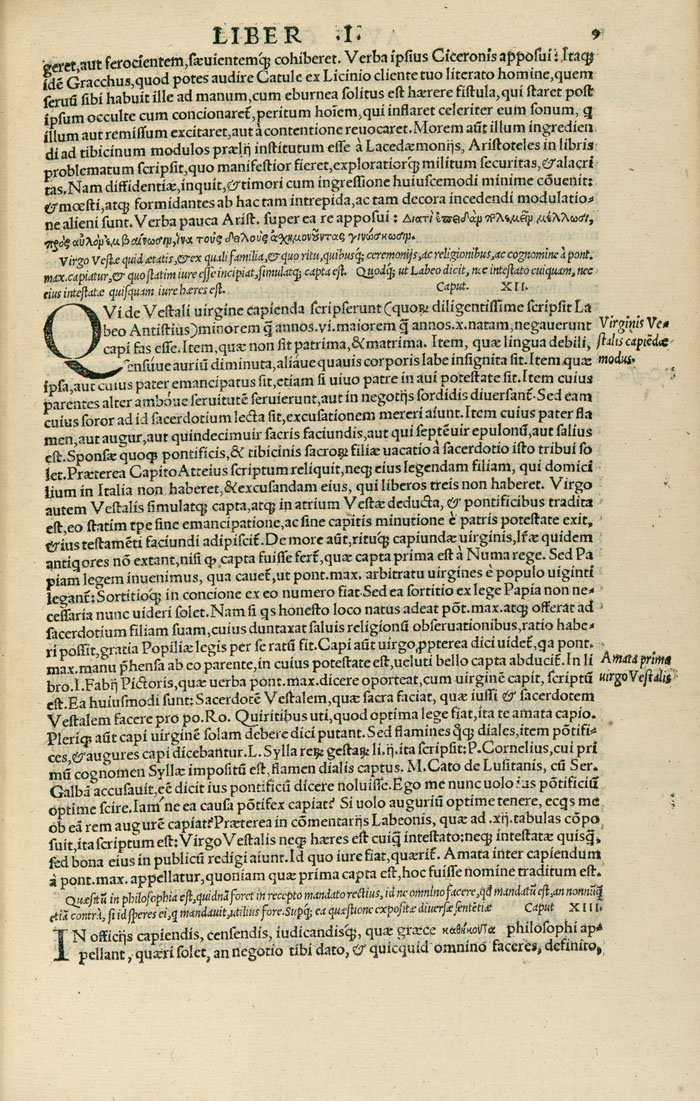 LIBER .I.
9
geret,aut ferocientem,sæuientemq; cohiberet. Verba ipsius Ciceronis apposui: Itaq;
idē Gracchus,quod potes audire Catule ex Licinio cliente tuo literato homine,quem
seruū sibi habuit ille ad manum,cum eburnea solitus est hærere fistula, qui staret post
ipsum occulte cum concionaret̃, peritum hoiem, qui inflaret celeriter eum sonum, q̃
illum aut remissum excitaret,aut à contentione reuocaret. Morem aūt illum ingredien
di ad tibicinum modulos prælij institutum esse à Lacedæmonijs, Aristoteles in libris
problematum scripsit,quo manifestior fieret,exploratiorq; militum securitas,&alacri
tas. Nam diffidentiæ,inquit,&timori cum ingressione huiuscemodi minime cōuenit:
&mœsti,atq; formidantes ab hac tam intrepida,ac tam decora incedendi modulatio-
ne alieni sunt. Verba pauca Arist. super ea re apposui :
Virgo Vestæ quid ætatis,&ex quali familia,&quo ritu,quibusq; ceremonijs,ac religionibus,ac cognomine à pont.
max.capiatur,&quo statim iure esse incipiat,simulatq; capta est. Quodq; ut Labeo dicit, nec intestato cuiquam, nec
eius intestatæ quisquam iure hæres est. Caput. XII.
QVi de Vestali uirgine capienda scripserunt(quoꝝ diligentissime scripsit La
beo Antistius)minorem q̃ annos.vi.maiorem q̃ annos.x.natam,negauerunt
capi fas esse. Item,quæ non sit patrima,&matrima. Item, quæ lingua debili,
sensiue auriū diminuta,aliaue quauis corporis labe insignita sit. Item quæ
Virginis Ve-
stalis capiēdæ
modus.
ipsa,aut cuius pater emancipatus sit,etiam si uiuo patre in aui potestate sit. Item cuius
parentes alter amboue seruitutē seruierunt,aut in negotijs sordidis diuersant̃. Sed eam
cuius soror ad id sacerdotium lecta sit,excusationem mereri aiunt. Item cuius pater fla
men,aut augur,aut quindecimuir sacris faciundis,aut qui septēuir epulonū,aut salius
est. Sponsæ quoq; pontificis,& tibicinis sacroꝝ filiæ uacatio à sacerdotio isto tribui so
let. Præterea Capito Atteius scriptum reliquit,neq; eius legendam filiam, qui domici
lium in Italia non haberet,&excusandam eius, qui liberos treis non haberet. Virgo
autem Vestalis simulatq; capta,atq; in atrium Vestæ deducta, & pontificibus tradita
est,eo statim tp̃e sine emancipatione,ac sine capitis minutione è patris potestate exit,
&ius testamēti faciundi adipiscit̃. De more aūt,rituq; capiundæ uirginis,lr̃æ quidem
antiq̃ores nō extant,nisi ꝙ capta fuisse fert̃,quæ capta prima est à Numa rege. Sed Pa
piam legem inuenimus, qua cauet̃,ut pont.max. arbitratu uirgines è populo uiginti
legant̃: Sortitioq; in concione ex eo numero fiat. Sed ea sortitio ex lege Papia non ne-
cessaria nunc uideri solet. Nam si q̃s honesto loco natus adeat pōt.max.atq; offerat ad
sacerdotium filiam suam,cuius duntaxat saluis religionū obseruationibus,ratio habe-
ri possit,gratia Popiliæ legis per se ratū fit. Capi aūt uirgo,ꝓpterea dici uidet̃,q̃a pont.
max.manu p̃hensa ab eo parente,in cuius potestate est,ueluti bello capta abducit̃. In li
bro.I.Fabij Pictoris,quæ uerba pont.max.dicere oporteat,cum uirginē capit, scriptū
Amata prima
uirgo Vestalis
est. Ea huiusmodi sunt: Sacerdotē Vestalem,quæ sacra faciat, quæ iussi & sacerdotem
Vestalem facere pro po.Ro. Quiritibus uti,quod optima lege fiat,ita te amata capio.
Pleriq; aūt capi uirginē solam debere dici putant. Sed flamines q̃q; diales,item pōtifi-
ces,&augures capi dicebantur. L. Sylla reꝝ gestaꝝ li.ij.ita scripsit: P.Cornelius,cui pri
mū cognomen Syllæ impositū est,flamen dialis captus. M.Cato de Lusitanis, cū Ser.
Galbā accusauit,eē dicit ius pontificū dicere noluisse. Ego me nunc uolo ius pōtificiū
optime scire. Iam ne ea causa pōtifex capiat? Si uolo auguriū optime tenere, ecq̃s me
ob eā rem augurē capiat? Præterea in cōmentarijs Labeonis, quæ ad .xij.tabulas cōpo
suit,ita scriptum est: Virgo Vestalis neq; hæres est cuiq̃ intestato: neq; intestatæ quisq̃,
sed bona eius in publicū redigi aiunt. Id quo iure fiat,quærit̃. Amata inter capiendum
à pont.max. appellatur,quoniam quæ prima capta est,hoc fuisse nomine traditum est.
Quæsitū in philosophia est,quidnā foret in recepto mandato rectius, id ne omnino facere,qđ mandatū est,an nonnūq̃
etiā contrà,si id speres ei,q̃ mandauit,utilius fore. Supq; ea quæstione expositæ diuersæ sententiæ Caput XIII.
IN officijs capiendis, censendis, iudicandisq;, quæ græce καθήκοντα philosophi ap-
pellant, quæri solet, an negotio tibi dato, & quicquid omnino faceres, definito,